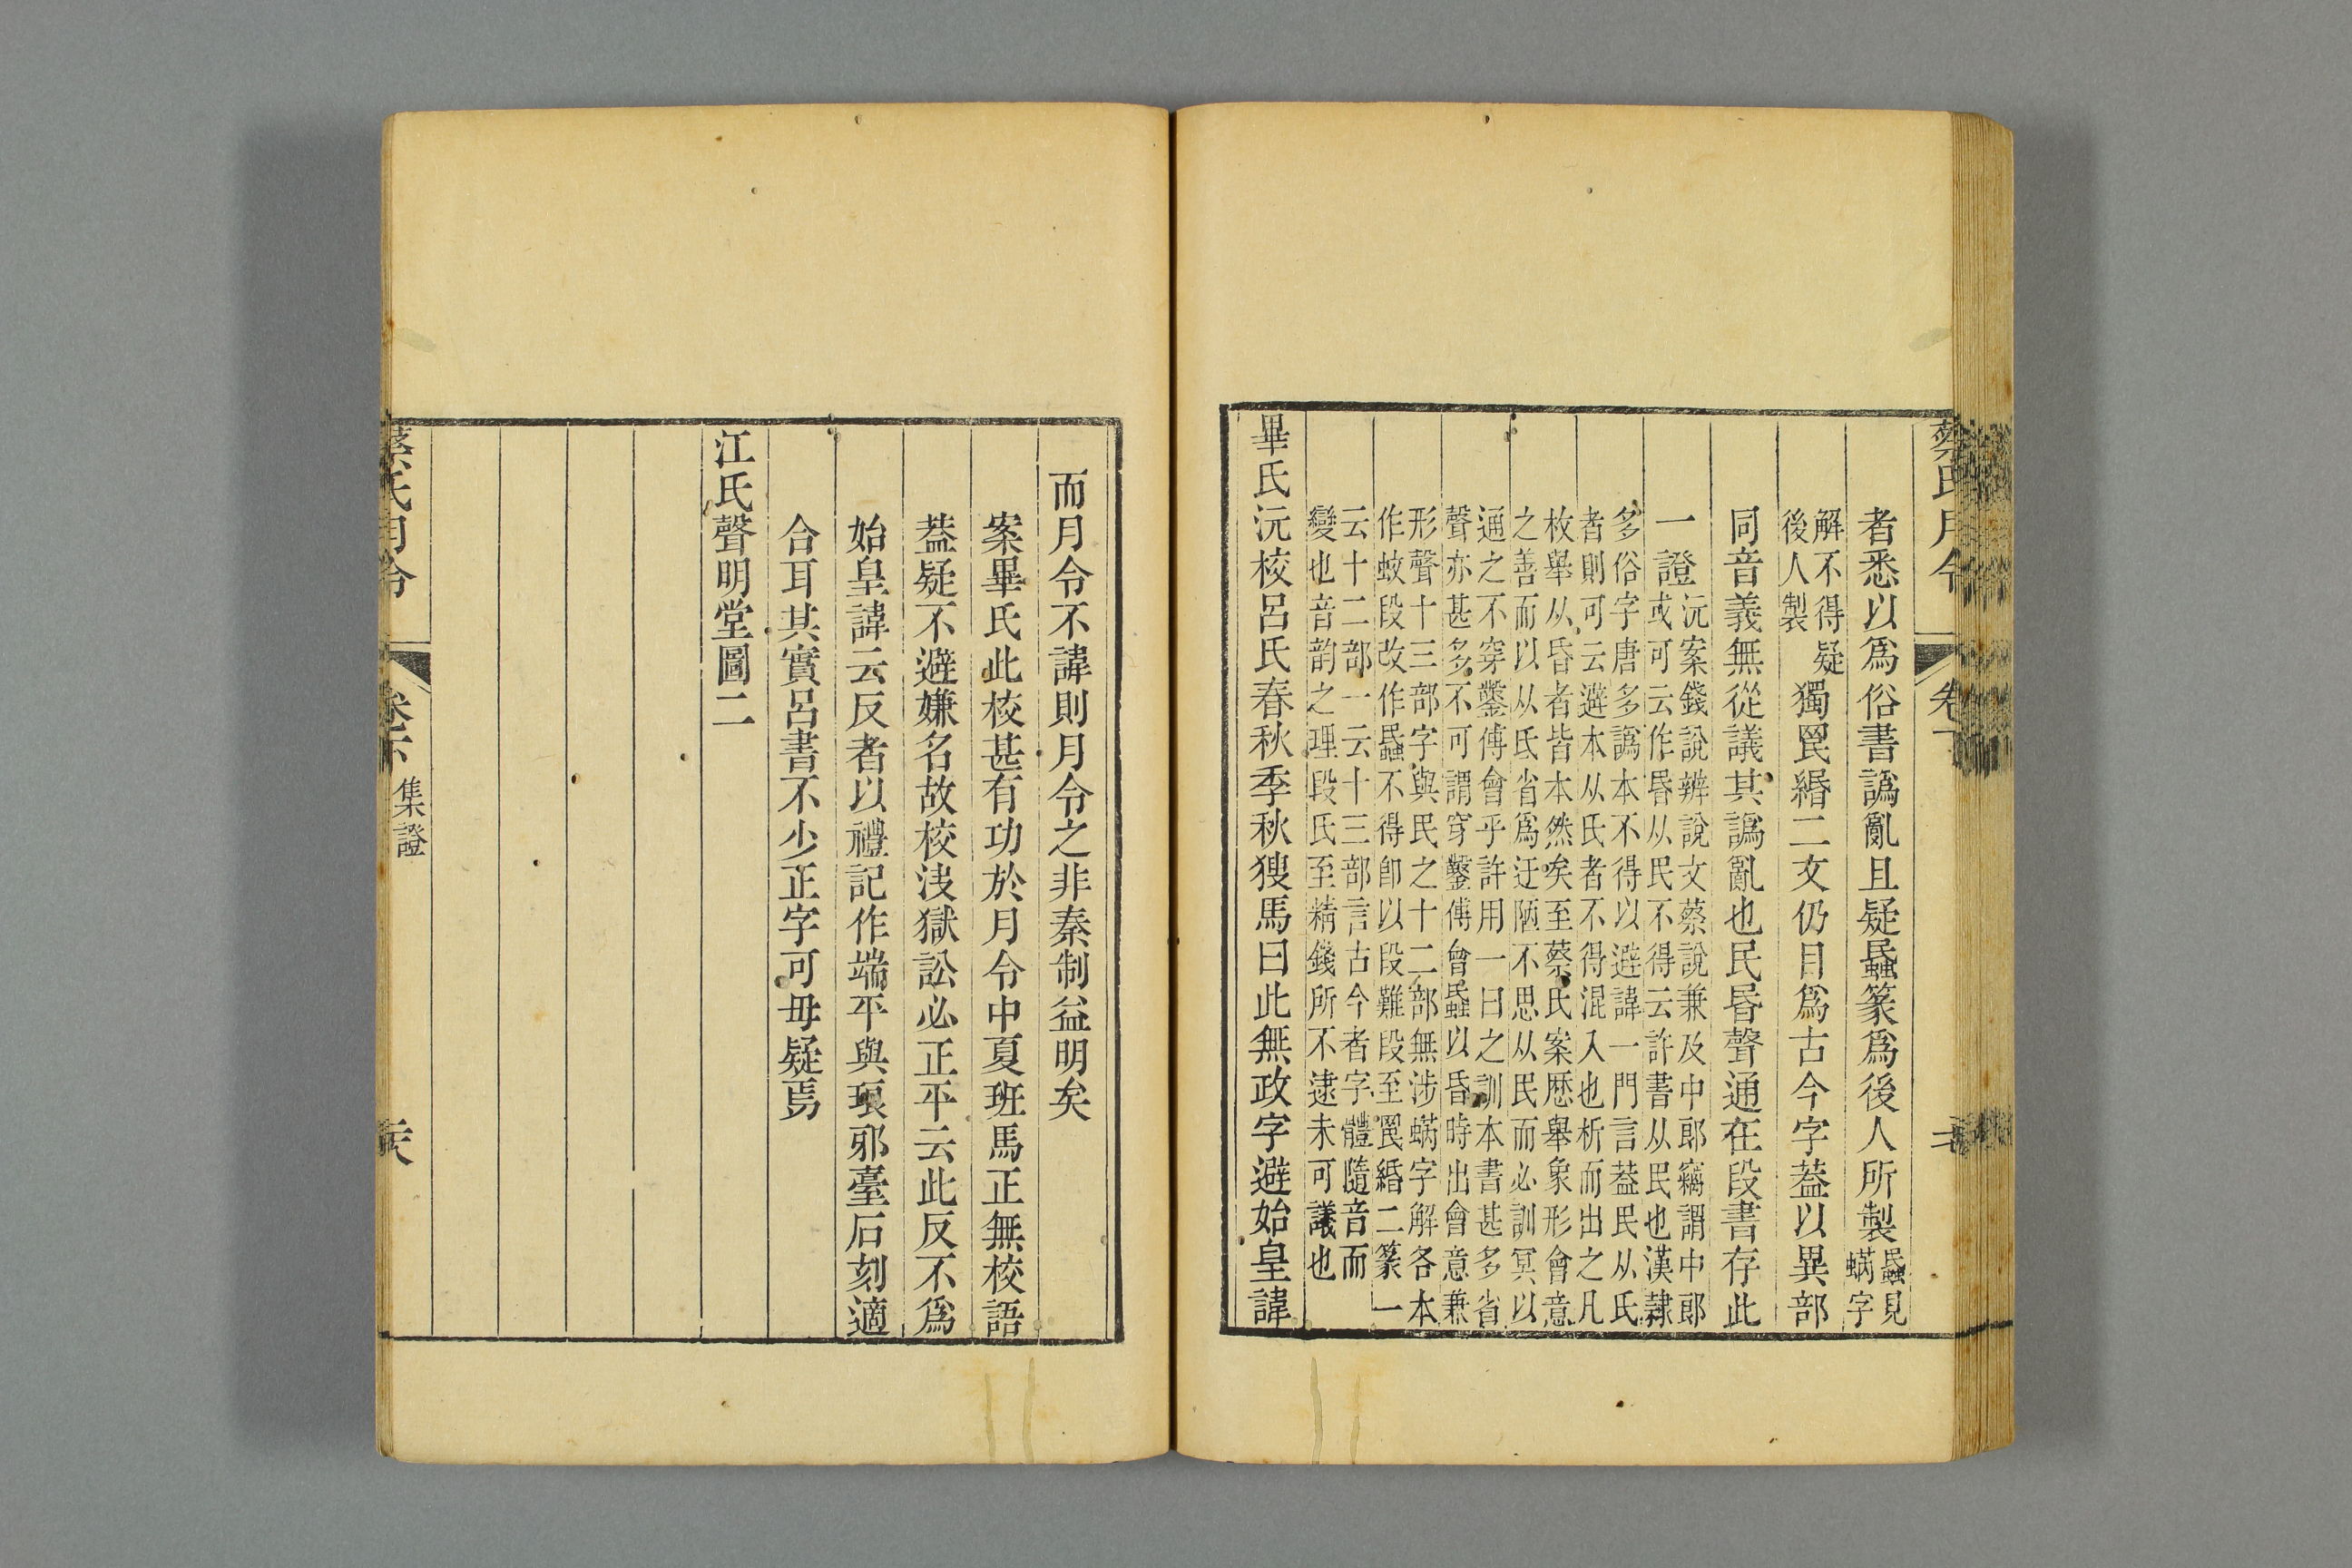 蔡氏月令
卷下
者悉以爲俗書譌亂且疑蟁篆爲後人所製蟁見蟎字
解不得疑後人製獨罠緡二文仍目爲古今字葢以異部
同音義無從議其譌亂也民昬聲通在段書存此
一證沅案錢說辨說文蔡說兼及中郞竊謂中郞
或可云作昬从民不得云許書从民也漢隸
多俗字唐多譌本不得以避諱一門言葢民从氏
者則可云避本从氏者不得混入也析而出之凡
枚舉从昏者皆本然矣至蔡氏案歴舉象形會意
之善而以从氏省爲迂陋不思从民而必訓冥以
通之不穿鑿傅會乎許用一曰之訓本書甚多省
聲亦甚多不可謂穿鑿傅會蟁以昏時出會意兼
形聲十三部字與民之十二部無涉蟎字解各本
作蚊段改作蟁不得卽以段難段至罠緡二篆一
云十二部一云十三部言古今者字體隨音而
變也音韵之理段氏至精錢所不逮未可議也
畢氏沅校呂氏春秋季秋獀馬曰此無政字避始皇諱
而月令不諱則月令之非秦制益明矣
案畢氏此校甚有功於月令中夏班馬正無校語
葢疑不避嫌名故校決獄訟必正平云此反不爲
始皇諱云反者以禮記作端平與琅邪臺石刻適
合耳其實呂書不少正字可毋疑焉
江氏聲明堂圖二
蔡氏月令
卷下
集證